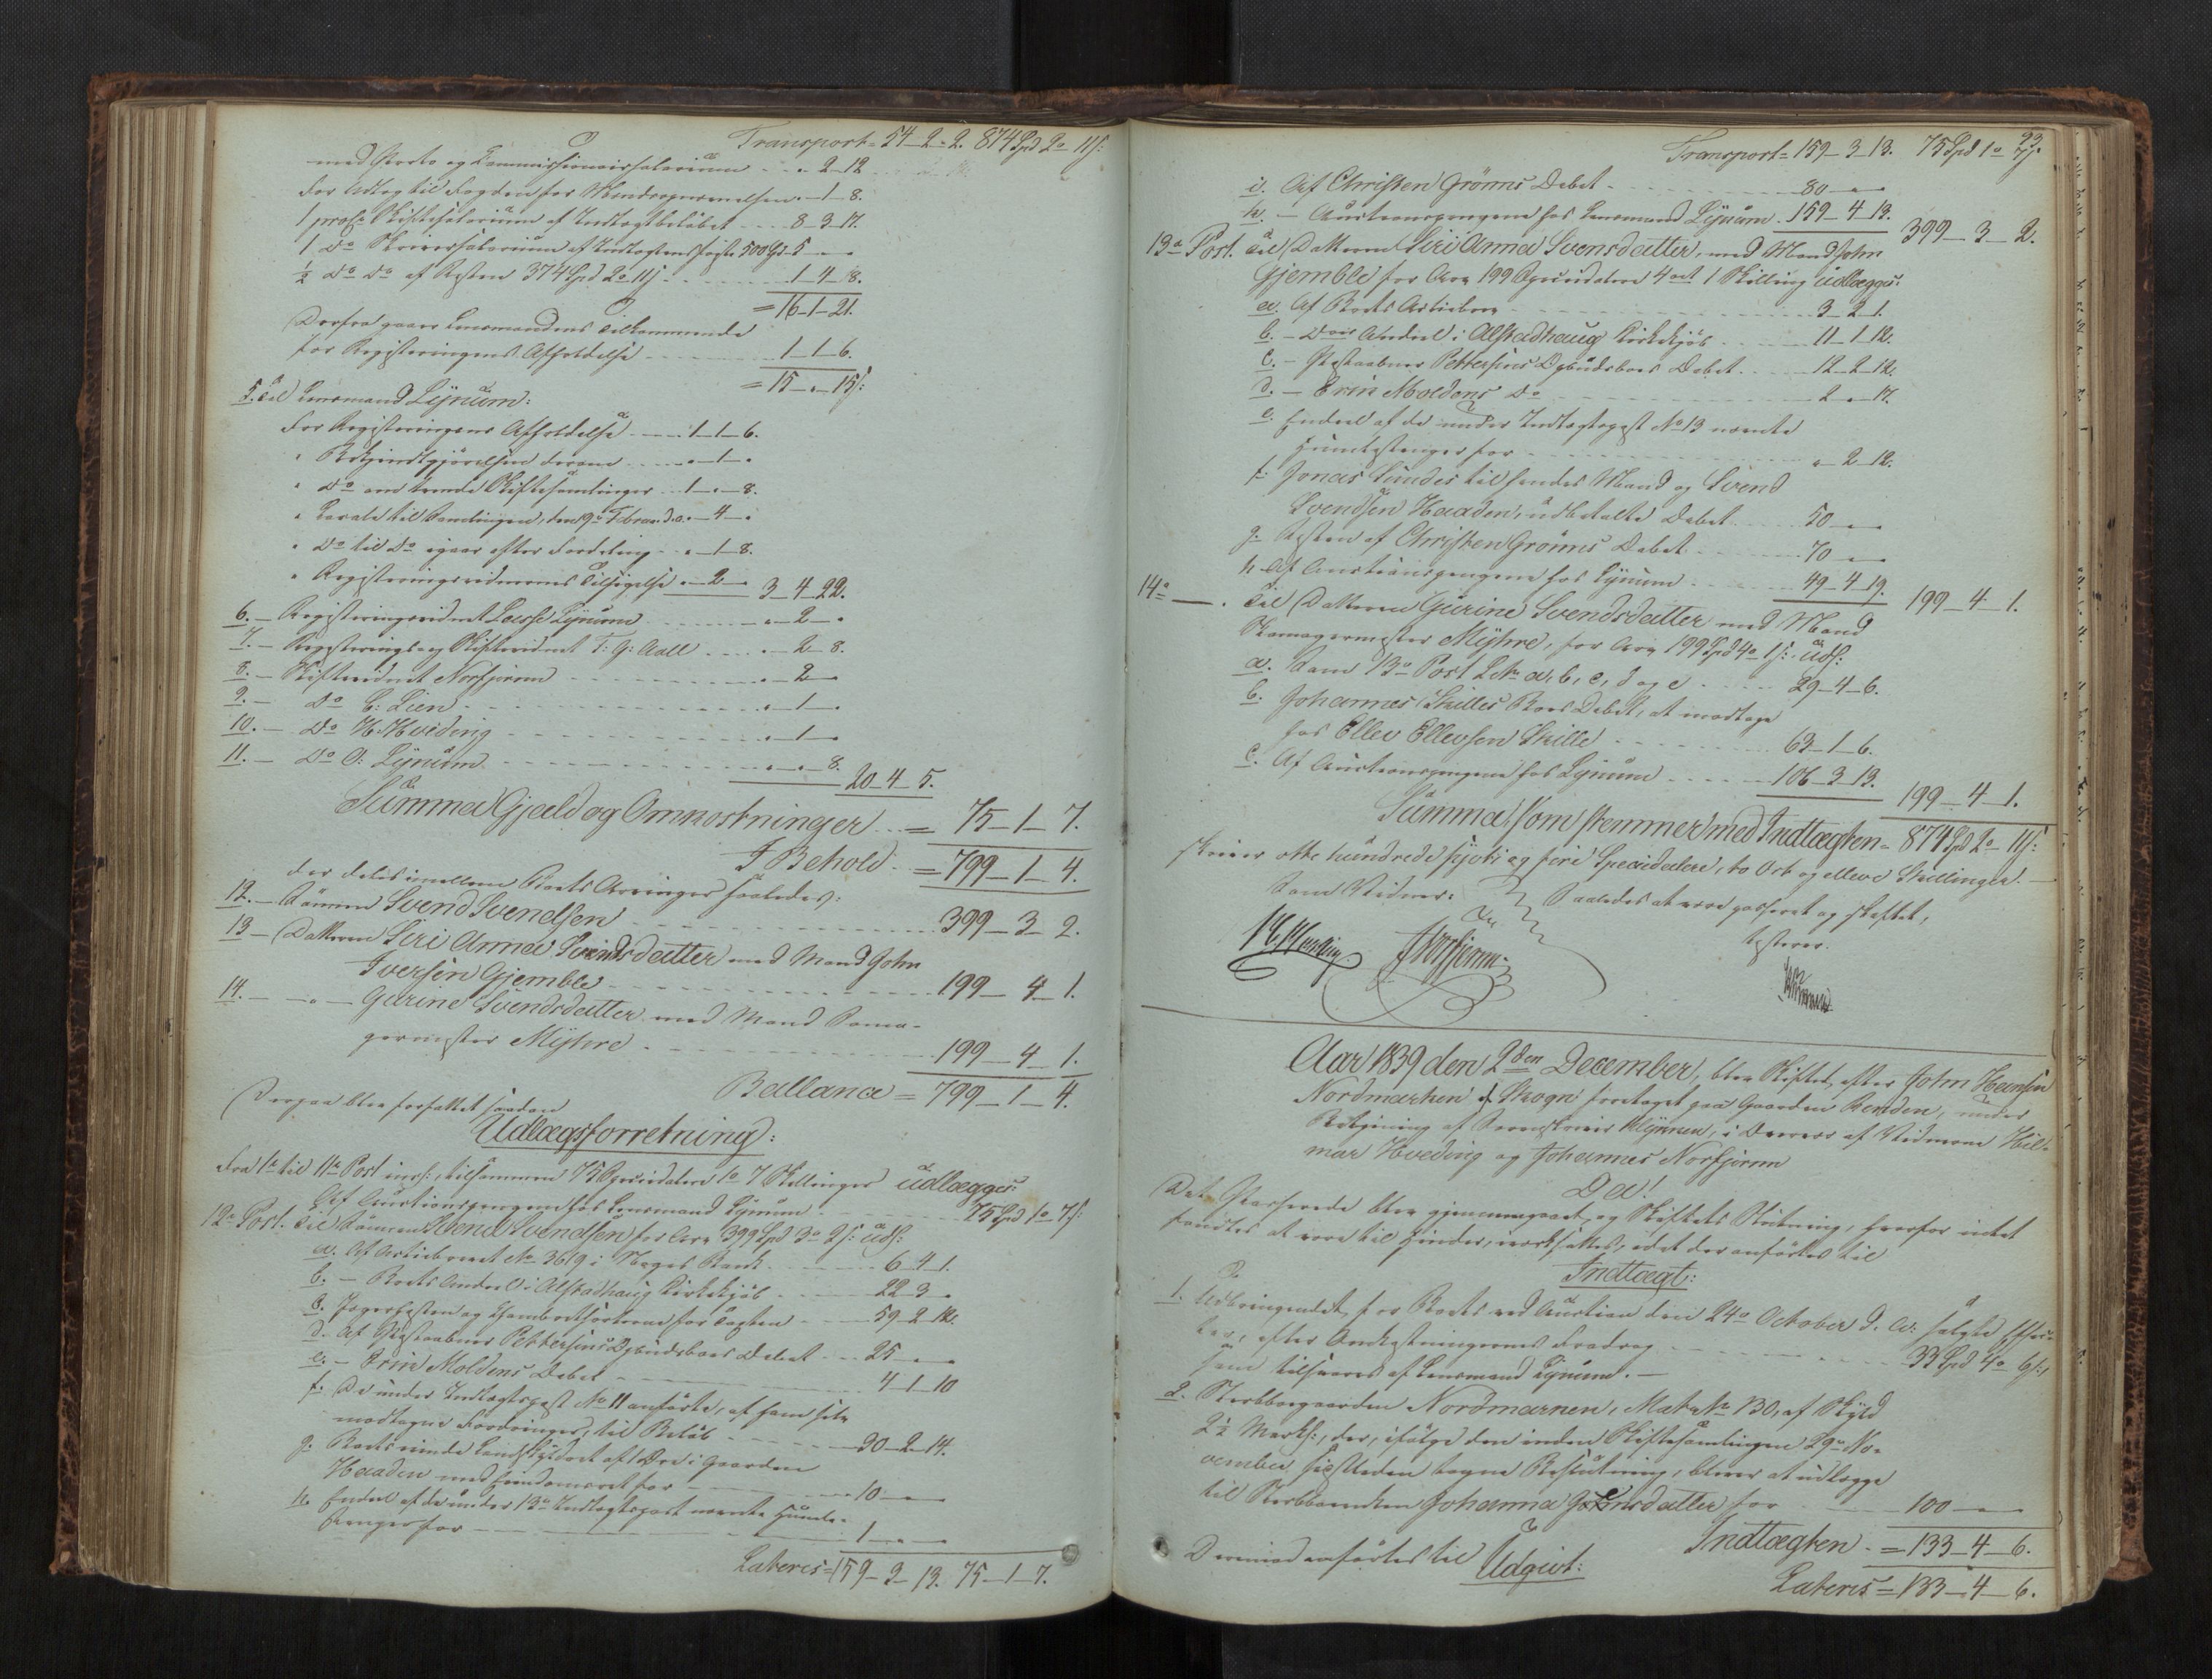 Transport = 54 - 2 - 2. 874 Spd 2 o 11 s:
med Porto og Commissionairsalarium - - „ 2 - 12
For Udlæg til Fogden for - 1 - 8.
1 proCt Skiftesalarium af Indtægtbeløbet - - - 8 - 3 - 17.
1 Do Skriversalarium af Indtægtens første 500 Spd - 5 - „ - „
½ Do Do af Resten 374 Spd 2 o 11 s - - - 1 - 4 - 18.
= 16 - 1 - 21.
Derfra gaaer Lensmandens Tilkommende
for Registreringens Afholdelse - - - 1 - 1 - 6.
= 15 - „ - 15 s:
5. Til Lensmand Lynum:
For Registreringens Afholdelse - - - 1 - 1 - 6.
„ Bekjendtgjørelsen derom - - - „ - 1 - „
„ Do om tvende Skiftesamlinger - - 1 - „ - 8.
„ Locale til Samlingen, den 9de Februar d. A. „ - 4 - „
„ Do til Do igaar efter Fordeling - - „ - 1 - 8.
„ Registreringsvidnernes Tilsigelse „ - 2 - „ 3 - 4 - 22.
6. - Registreringsvidnet Lasse Lynum - - - „ - 2 - „
7. - Registrerings- og Skiftevidnet T: G: Aall - - - „ - 2 - 8.
8. - Skiftevidnet Norfjerm - - - „ - 2 - „
9. - Do C: Lien - - - „ - 1 - „
10. - Do H. Hveding - - - „ - 1 - „
11. - Do O: Lynum - - - „ - „ - 8.
20 - 4 - 5.
Summa Gjæld og Omkostninger - - = 75 - 1 - 7.
I Behold - = 799 - 1 - 4.
der deles imellem Boets Arvinger saaledes:
12. - Sønnen Svend Svendsen - - - 399 - 3 - 2.
13 - Datteren Siri Anna Svendsdatter med Mand John
Iversen Gjemble - - - 199 - 4 - 1.
14. - „ - Gurine Svendsdatter med Mand Skoma-
germester Myhre - - - 199 - 4 - 1.
Ballance = 799 - 1 - 4.
Derpaa blev forfattet saadan
Udlægsforretning:
Fra 1te til 11te Post incl:, tilsammen 75 Speciedaler 1 o 7 Skillinger udlægges:
Af Auctionspengene hos Lensmand Lynum - - - 75 Spd 1 o 7 s:
12te Post. Til Sønnen Svend Svendsen for Arv 399 Spd 3 o 2 s: udl:
a. Af Actiebrevet No 3619 i Norges Bank - - - 6 - 4 - 1.
b. - Boets Andeel i Alstadhaug Kirkekjøb - - - 22 - 3 - „
c. og for Taxten - - - 59 - 2 - 12.
d. Af Gjestgiver Pettersens Dødsboes Debet - - - 25 - „ - „
e. - Erin Moldens Debet - - - 4 - 1 - 10
f. De under Indtægtspost No 11 anførte, af ham selv
modtagne Fordringer, til Beløb - - - 30 - 2 - 14.
g. Boets af 1 Øre i Gaarden
Haaden med for - - - 10 - „ - „
h. Endeel af de under 13de Indtægtspost nævnte Humle-
stænger for - - - 1 - „ - „
Lateris = 159 - 3 - 13. 75 - 1 - 7.
93.
Transport = 159 - 3 - 13. 75 Spd 1 o 7 s.
i. Af Christen Grønns Debet - - - 80 - „ - „
k. - Auctionspengene hos Lensmand Lynum - 159 - 4 - 13.
399 - 3 - 2.
13de Post. Til Datteren Siri Anna Svensdatter, med Mand John
Gjemble for Arv 199 Speciedaler 4 ort 1 Skilling udlægges:
a. Af Boets Actiebrev - - - 3 - 2 - 1.
b. - Dets Andeel i Alstadhaug Kirkekjøb - - - 11 - 1 - 12.
c. - Gjestgiver Pettersens Dødsboes Debet - - - 12 - 2 - 12.
d. - Erin Moldens Do - - - 2 - „ - 17.
e. Endeel af de under Indtægtspost No 13 nævnte
Humlestænger for - - - „ - 2 - 12.
f. Jonas Sundes til hendes Mand og Svend
Svendsen Haaden, udbetalte Debet - - - 50 - „ - „
g. Resten af Christen Grønns Debet - - - 70 - „ - „
h. Af Auctionspengene hos Lynum - - - 49 - 4 - 19.
199 - 4 - 1.
14de - . Til Datteren Gurine Svendsdatter med Mand
Skomagermester Myhre, for Arv 199 Spd 4 o 1 s: udl:
a. Som 13de Post Litr a, b, c, d og e - - - 29 - 4 - 6.
b. Johannes Skilles Boes Debet, at modtage
hos Ellev Ellevsen Skille - - - 63 - 1 - 6.
c. Af Auctionspengene hos Lynum - - - 106 - 3 - 13.
199 - 4 - 1.
Summa som stemmer med Indtægten = 874 Spd 2 o 11 s:
skriver otte hundrede sytti og fire Speciedaler, to Ort og elleve Skillinger. -
Som Vidner: Saaledes at være passeret og skiftet,
testerer.
H. Hveding. Norfjerm.
Aar 1839 den 2den December, blev Skiftet efter John Hansen
Nordmarken i Skogn foretaget paa Gaarden Renden, under
Betjening af Sorenskriver Klynsen, i Overvær af Vidnerne Hil-
mar Hveding og Johannes Norfjerm
Da!
Det Passerede blev gjennemgaaet og Skiftets Slutning, hvorfor intet
fandtes at være til Hinder, iværksattes, idet der anførtes til
Indtægt:
1. Udbringendet for Boets ved Auction den 24de October d. A: solgte Effec-
ter, efter Omkostningernes Fradrag - - - 33 Spd 4 o 6 s:,
som tilsvares af Lensmand Lynum. -
2. Sterbboegaarden Nordmarken, Matr No 130, af Skyld
2½ Mark:, der, ifølge den inden Skiftesamlingen 29de No-
vember sidstleden tagne Beslutning, bliver at udlægge
til Sterbboenken Johanna Jensdatter for - - - 100 - „ - „
Indtægten - = 133 - 4 - 6.
Derimod anførtes til Udgivt:
Lateris = 133 - 4 - 6.